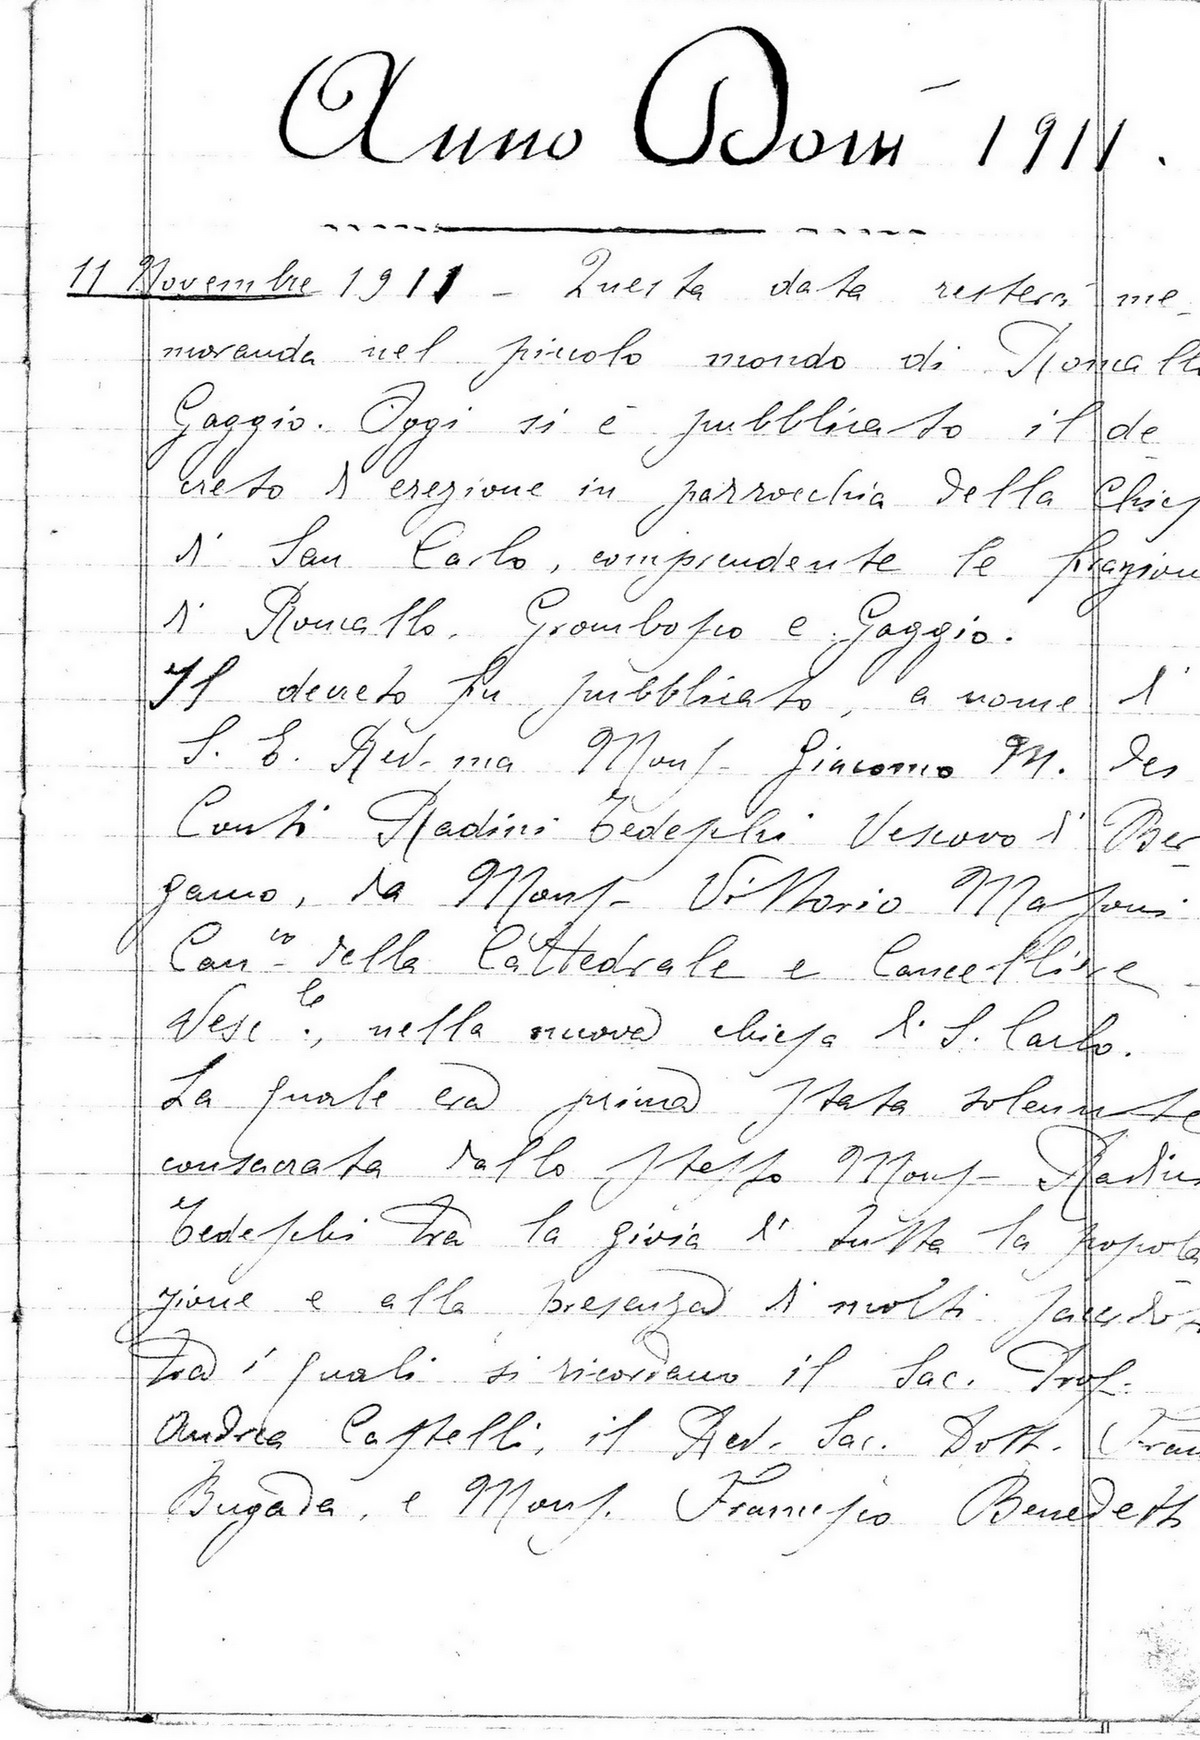 Anno Domi 1911.
11 Novembre 1911 - Questa data resterà me-
moranda nel piccolo mondo di Roncallo
Gaggio. Oggi si è pubblicato il de
creto di erezione in parrocchia della Chies
di San Carlo, comprendente le frazion
di Roncallo, Grombosco e Gaggio.
Il decreto fu pubblicato, a nome di
S. E. Rev.ma Mons. Giacomo M. dei
Conti Radini Tedeschi Vescovo di Ber-
gamo, da Mons. Vittorio Massoni
Can.co della Cattedrale e Cancelliere
Vesc.le, nella nuova chiesa di S. Carlo.
La quale era prima stata solenmte
consacrata dallo stesso Mons. Radini
Tedeschi tra la gioia di tutta la popola
zione e alla presenza di molti sacerdot
tra i quali si ricordano il Sac. Prof.
Andrea Castelli, il Rev. Sac. Dott. Fran
Bugada, e Mons. Francesco Benedetti